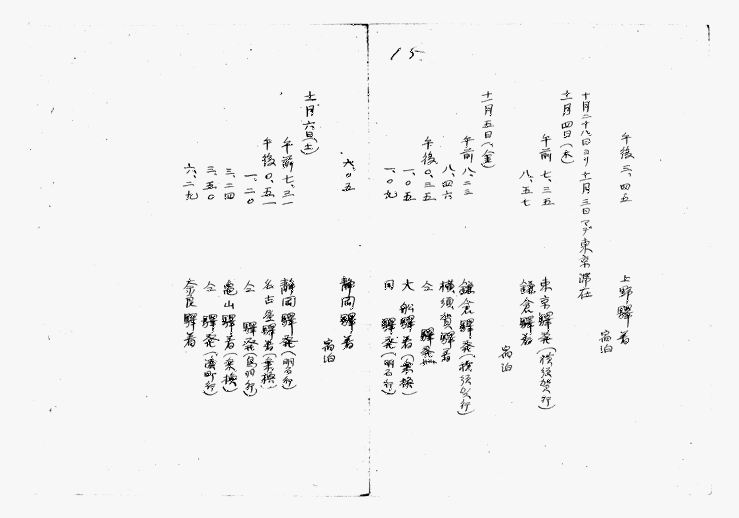 15
午後 三、四五 上野驛着
宿泊
十月二十八日ヨリ十一月三日マデ東京滞在
十一月四日(木)
午前 七、三五 東京驛発(横須賀行)
八、五七 鎌倉驛着
宿泊
十一月五日(金)
午前 八、二三 鎌倉驛発(横須賀行)
八、四六 横須賀驛着
午後 〇、三五 仝 驛発
一、〇五 大船驛着(乗換)
一、〇九 同 驛発(明石行)
六、〇五 静岡驛着
宿泊
十一月六日(土)
午前 七、三一 静岡驛発(明石行)
午後 〇、五一 名古屋驛着(乗換)
一、二〇 仝 驛発(鳥羽行)
三、二四 亀山驛着(乗換)
三、五〇 仝 驛発(湊町行)
六、二九 奈良驛着